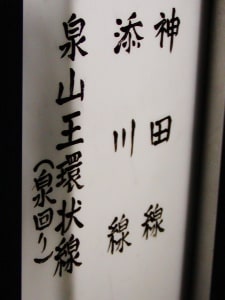 神田線
添川線
泉山王環状線
(泉回り)